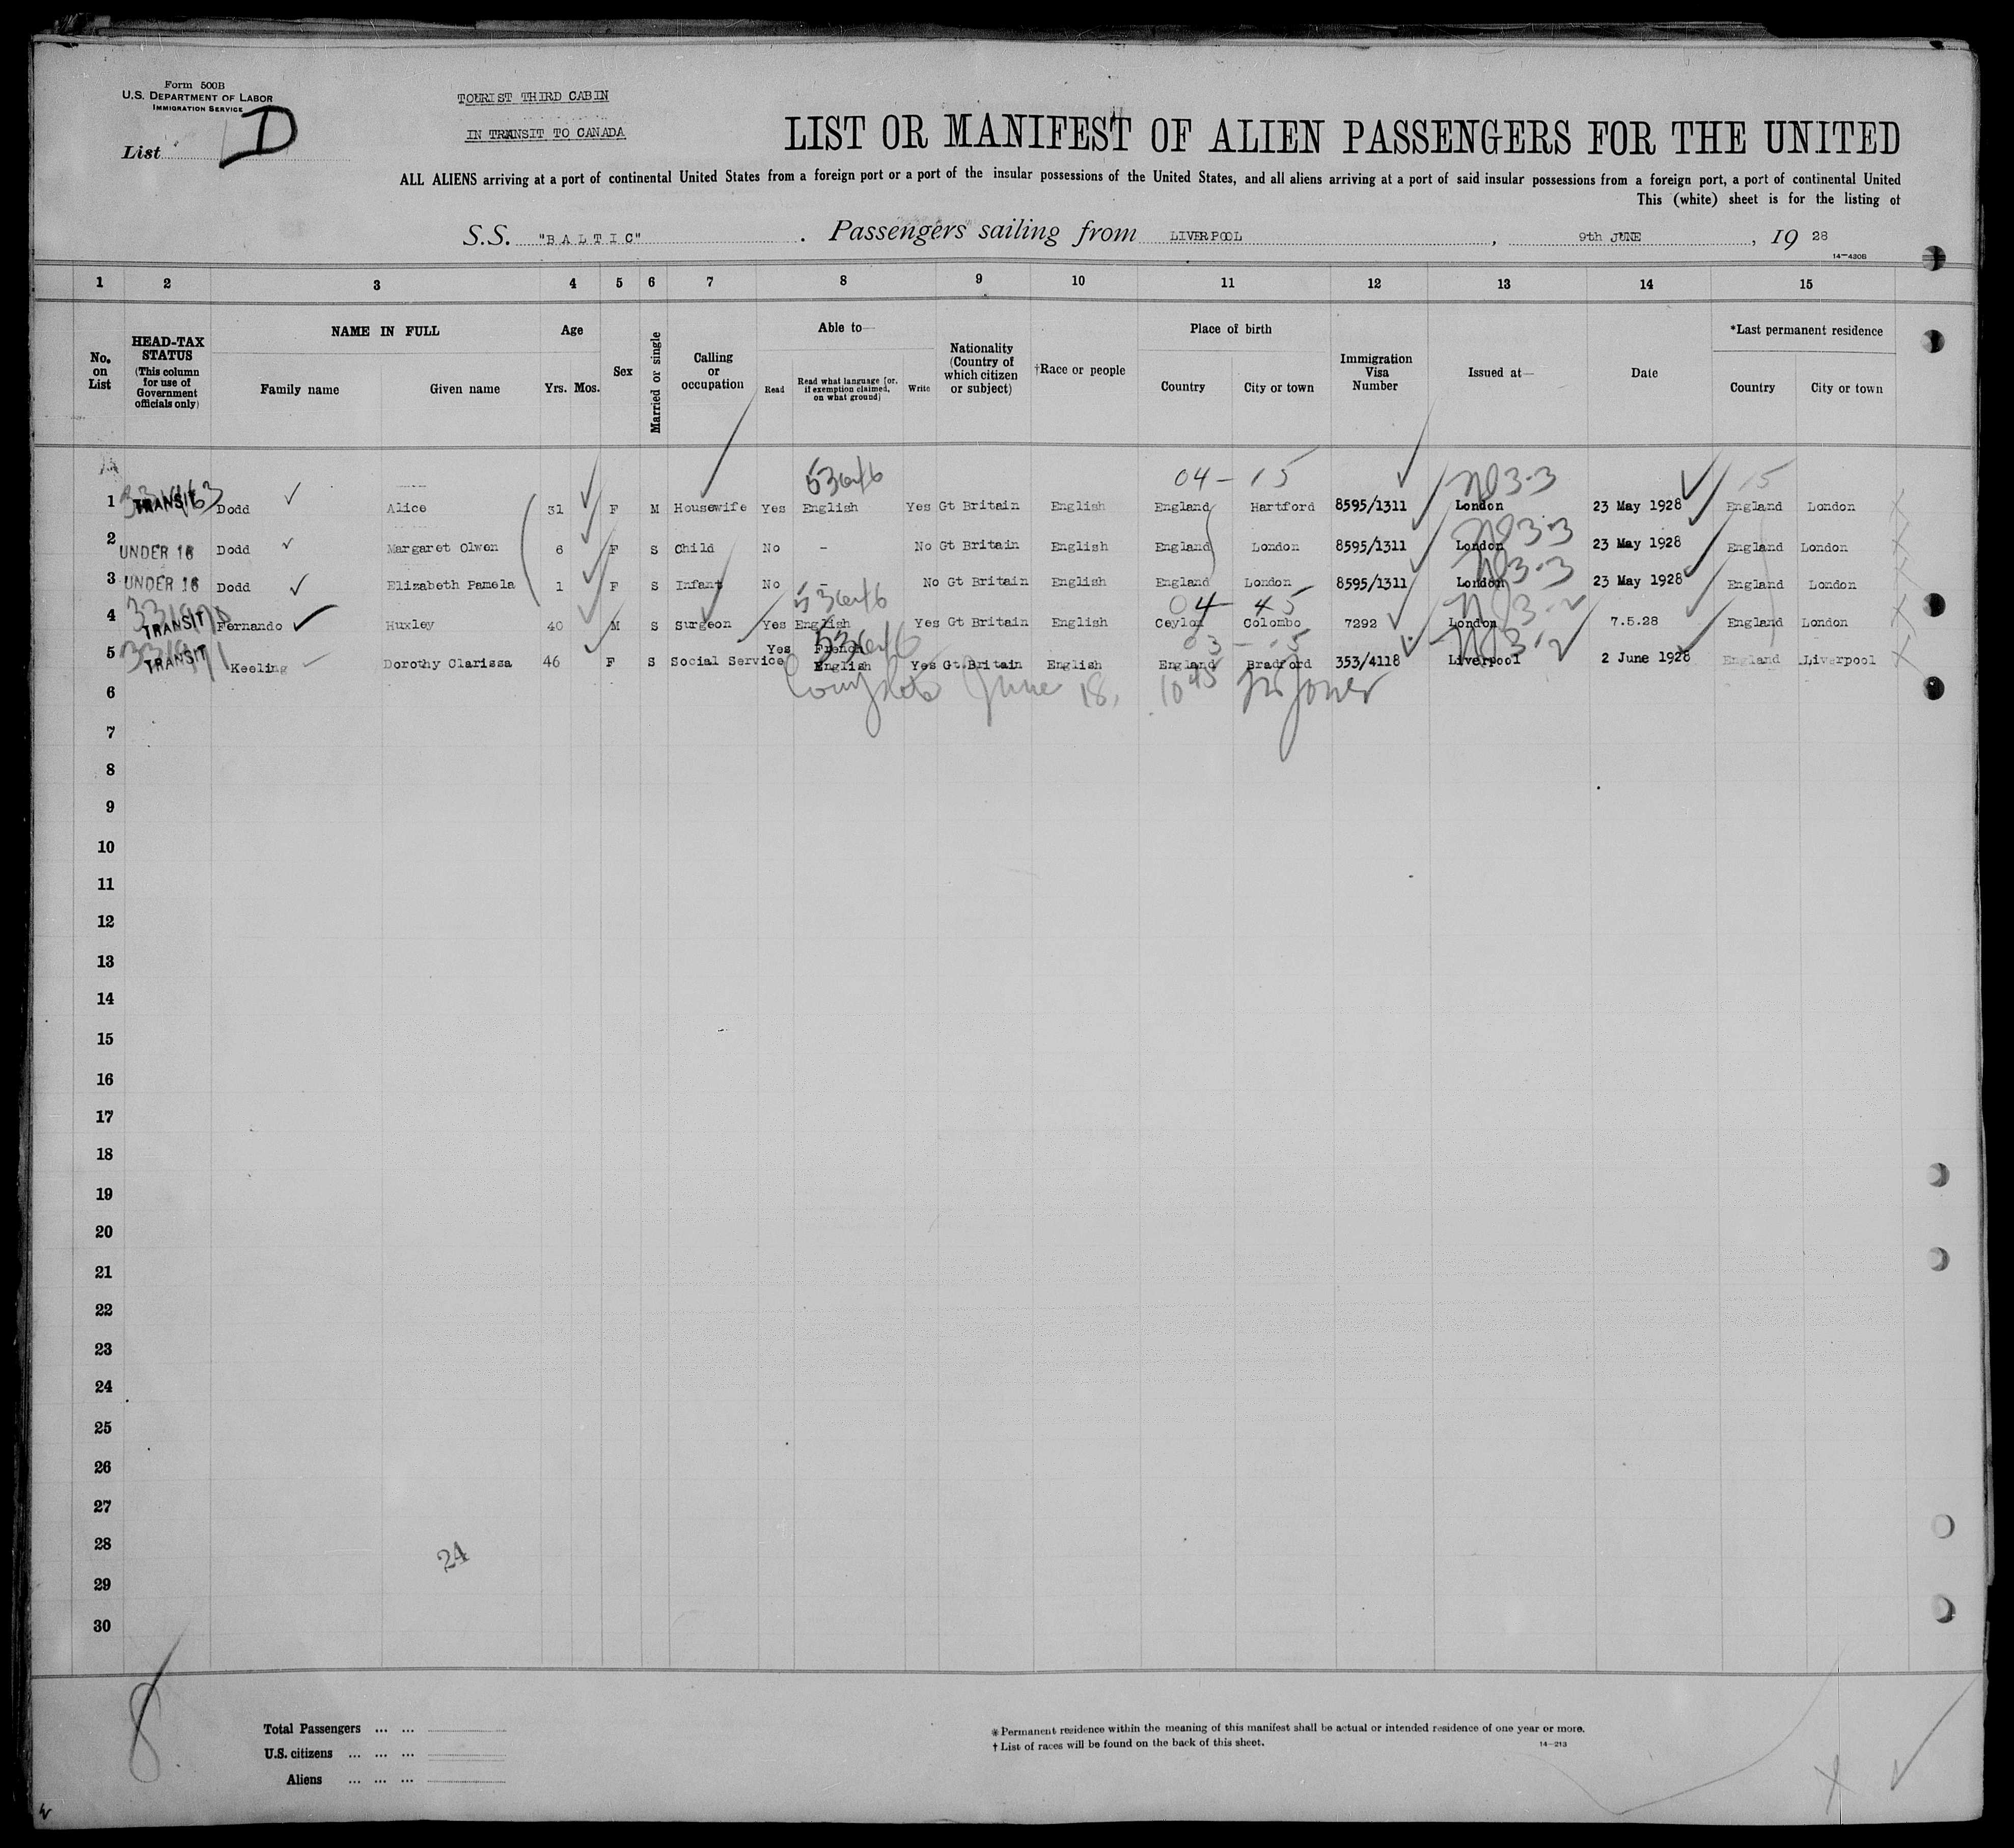 Form 500B
U.S. DEPARTMENT OF LABOR
IMMIGRATION SERVICE
List D
TOURIST THIRD CABIN
IN TRANSIT TO CANADA
LIST OR MANIFEST OF ALIEN PASSENGERS FOR THE UNITED
ALL ALIENS arriving at a port of continental United States from a foreign port or a port of the insular possessions of the United States, and all aliens arriving at a port of said insular possessions from a foreign port, a port of continental United
This (white) sheet is for the listing of
S.S. "BALTIC". Passengers sailing from LIVERPOOL, 9th JUNE, 19 28
14—430B
1 2 3 4 5 6 7 8 9 10 11 12 13 14 15
No. on List
HEAD-TAX STATUS (This column for use of Government officials only)
NAME IN FULL
Family name Given name
Age
Yrs. Mos.
Sex
Married or single
Calling or occupation
Able to—
Read Read what language [or, if exemption claimed, on what ground] Write
Nationality (Country of which citizen or subject)
†Race or people
Place of birth
Country City or town
Immigration Visa Number
Issued at—
Date
*Last permanent residence
Country City or town
04 - 15 15
1 TRANSIT Dodd Alice 31 F M Housewife Yes English Yes Gt Britain English England Hartford 8595/1311 London 23 May 1928 England London
2 UNDER 16 Dodd Margaret Olwen 6 F S Child No - No Gt Britain English England London 8595/1311 London 23 May 1928 England London
3 UNDER 16 Dodd Elizabeth Pamela 1 F S Infant No - No Gt Britain English England London 8595/1311 London 23 May 1928 England London
04 - 45
4 TRANSIT Fernando Huxley 40 M S Surgeon Yes English Yes Gt Britain English Ceylon Colombo 7292 London 7.5.28 England London
03 - 15
Yes French
5 TRANSIT Keeling Dorothy Clarissa 46 F S Social Service English Yes Gt.Britain English England Bradford 353/4118 Liverpool 2 June 1928 England Liverpool
6 June 18, 10 45 Jones
7
8
9
10
11
12
13
14
15
16
17
18
19
20
21
22
23
24
25
26
27
28
24
29
30
8
Total Passengers ... ...
U.S. citizens ... ... ...
Aliens ... ... ...
* Permanent residence within the meaning of this manifest shall be actual or intended residence of one year or more.
† List of races will be found on the back of this sheet.
14—213